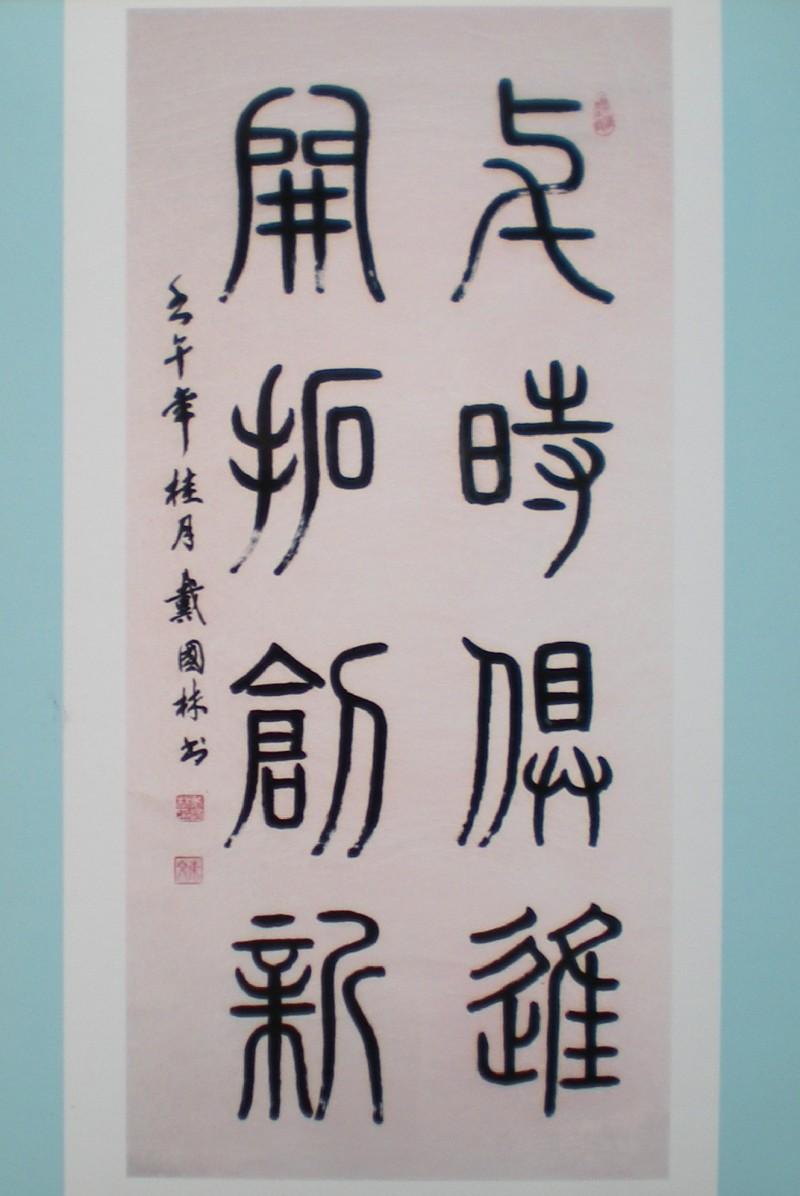 与時俱進
開拓創新
壬午年桂月戴國林书